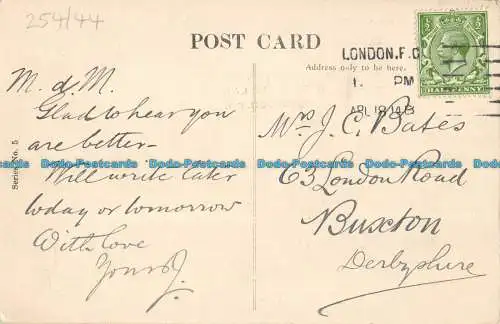 254/44
POST CARD
Address only to be here.
LONDON.F.C
1. PM
APL 18 14 B
HALFPENNY
Series No. 5
M. d. M.
Glad to hear you
are better-
Will write later
today or tomorrow
With love
Yours J.
Mrs J. C. Bates
63 London Road
Buxton
Derbyshire
Dado-Postcards Dado-Postcards Dado-Postcards Dado-Postcards